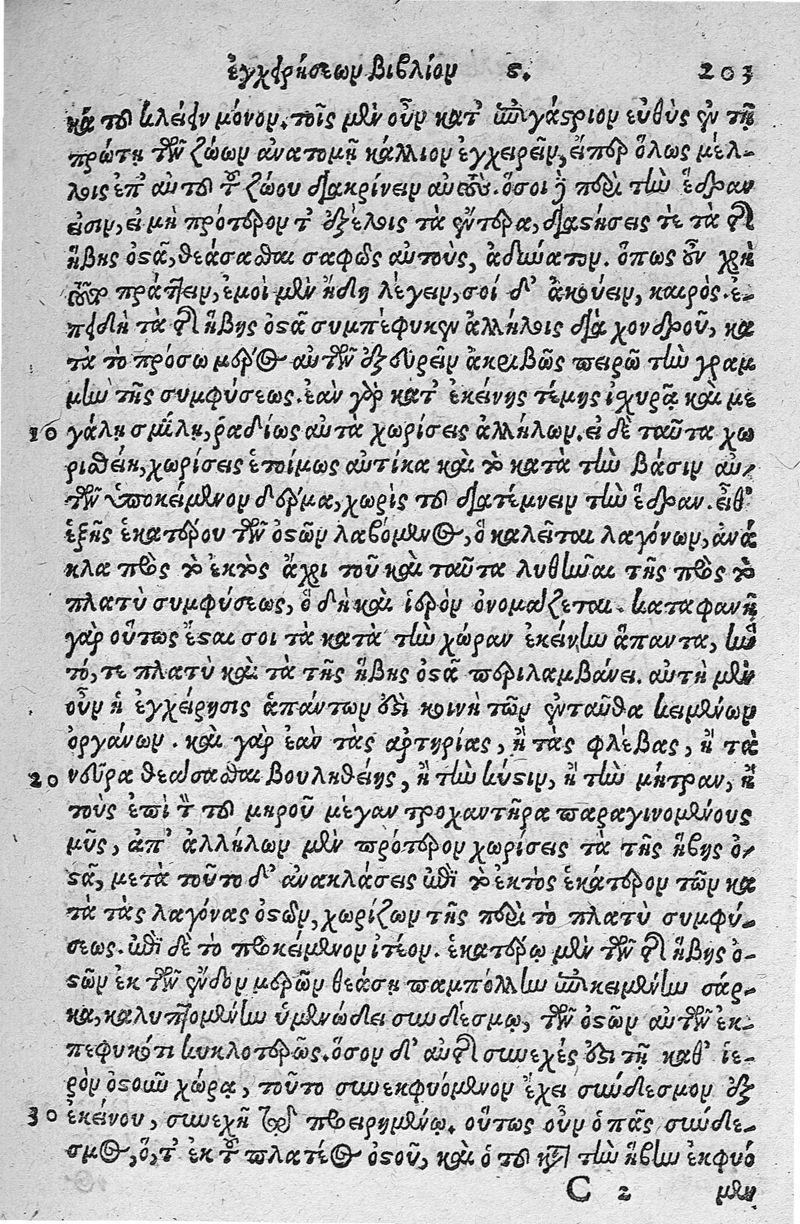 ἐγχειρήσεων βιβλίον ϛ. 203
κὰ τοῦ κλείειν μόνον. τοῖς μὲν οὖν κατ' ὑπογάστριον εὐθὺς ἐν τῇ
πρώτῃ τῶν ζώων ἀνατομῇ κάλλιον ἐγχειρεῖν, εἴπερ ὅλως μέλ-
λοις ἐπ' αὐτοῦ τοῦ ζώου διακρίνειν αὐτούς. ὅσοι δὲ περὶ τὴν ἕδραν
εἰσιν, εἰ μὴ πρότερον τ' ἐξέλοις τὰ ἔντερα, διαστήσεις τὲ τὰ τῆς
ἥβης ὀστᾶ, θεάσασθαι σαφῶς αὐτοὺς, ἀδύνατον. ὅπως οὖν χρὴ
τοῦτο πράττειν, ἐμοὶ μὲν ἤδη λέγειν, σοί δ' ἀκούειν, καιρὸς. ἐ-
πειδὴ τὰ τῆς ἥβης ὀστᾶ συμπέφυκεν ἀλλήλοις διὰ χονδροῦ, κα
τὰ τὸ πρόσω μέρος αὐτῶν ἐξευρεῖν ἀκριβῶς πειρῶ τὴν γραμ
μὴν τῆς συμφύσεως. ἐὰν γὰρ κατ' ἐκείνης τέμῃς ἰχυρᾷ καὶ με
10 γάλῃ σμίλῃ, ῥᾳδίως αὐτὰ χωρίσεις ἀλλήλων. εἰ δὲ ταῦτα χω
ρισθείη, χωρίσεις ἑτοίμως αὐτίκα καὶ τὸ κατὰ τὴν βάσιν αὐ-
τῶν ὑποκείμενον δέρμα, χωρὶς τοῦ διατέμνειν τὴν ἕδραν. εἶθ'
ἑξῆς ἑκατέρου τῶν ὀστῶν λαβόμενος, ὃ καλεῖται λαγόνων, ἀνά
κλα πρὸς τὸ ἐκτὸς ἄχρι τοῦ καὶ ταῦτα λυθῆναι τῆς πρὸς τὸ
πλατὺ συμφύσεως, ὃ δὴ καὶ ἱερὸν ὀνομάζεται. καταφανῆ
γὰρ οὕτως ἔσται σοι τὰ κατὰ τὴν χώραν ἐκείνην ἅπαντα, ἣν
τό, τε πλατὺ καὶ τὰ τῆς ἥβης ὀστᾶ περιλαμβάνει. αὕτη μὲν
οὖν ἡ ἐγχείρησις ἁπάντων ἐστὶ κοινὴ τῶν ἐνταῦθα κειμένων
ὀργάνων. καὶ γὰρ ἐὰν τὰς ἀρτηρίας, ἢ τὰς φλέβας, ἢ τὰ
20 νεῦρα θεάσασθαι βουληθείης, ἢ τὴν κύστιν, ἢ τὴν μήτραν, ἢ
τοὺς ἐπὶ τὸν τοῦ μηροῦ μέγαν τροχαντῆρα παραγινομένους
μῦς, ἀπ' ἀλλήλων μὲν πρότερον χωρίσεις τὰ τῆς ἥβης ὀ-
στᾶ, μετὰ τοῦτο δ' ἀνακλάσεις ἐπὶ τὸ ἐκτὸς ἑκάτερον τῶν κα
τὰ τὰς λαγόνας ὀστῶν, χωρίζων τῆς περὶ τὸ πλατὺ συμφύ-
σεως. ἐπὶ δὲ τὸ προκείμενον ἰτέον. ἑκατέρῳ μὲν τῶν τῆς ἥβης ὀ-
στῶν ἐκ τῶν ἔνδον μερῶν θεάσῃ παμπόλλην ἐπικειμένην σάρ-
κα, καλυπτομένην ὑμενώδει συνδέσμῳ, τῶν ὀστῶν αὐτῶν ἐκ-
πεφυκότι κυκλοτερῶς. ὅσον δ' αὐτῆς συνεχές ἐστι τῇ καθ' ἱε-
ρὸν ὀστοῦν χώρᾳ, τοῦτο συνεκφυόμενον ἔχει σύνδεσμον ἐξ
30 ἐκείνου, συνεχῆ τῷ προειρημένῳ. οὕτως οὖν ὁ πᾶς σύνδε-
σμος, ὅ, τ' ἐκ τοῦ πλατέος ὀστοῦ, καὶ ὁ τοῦ κατὰ τὴν ἥβην ἐκφυό
C 2 μεν